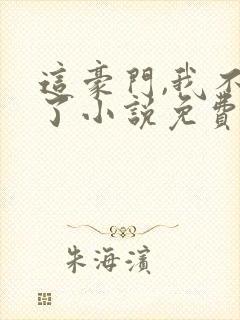 這豪門,我不
了小說免費
朱海濱